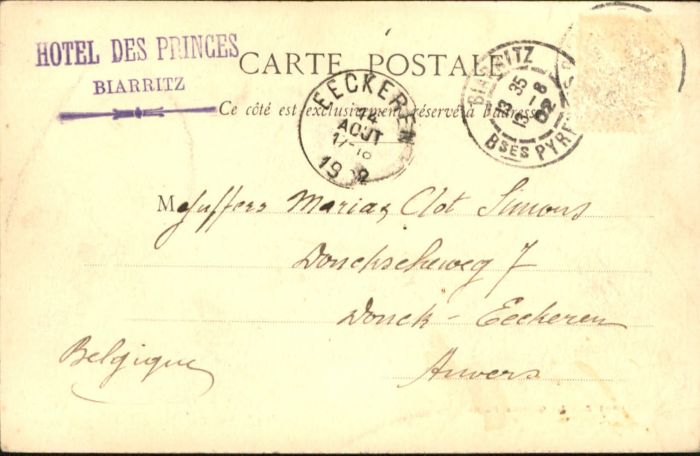 HOTEL DES PRINCES
BIARRITZ
CARTE POSTALE
Ce côté est exclusivement réservé à l'adresse
EECKEREN
14
AOUT
1902
BIARRITZ
13 35
12 -8
02
BSES PYRENEES
Mejuffers Maria & Clot Simons
Donckscheweg 7
Donck - Eeckeren
Anvers
Belgique